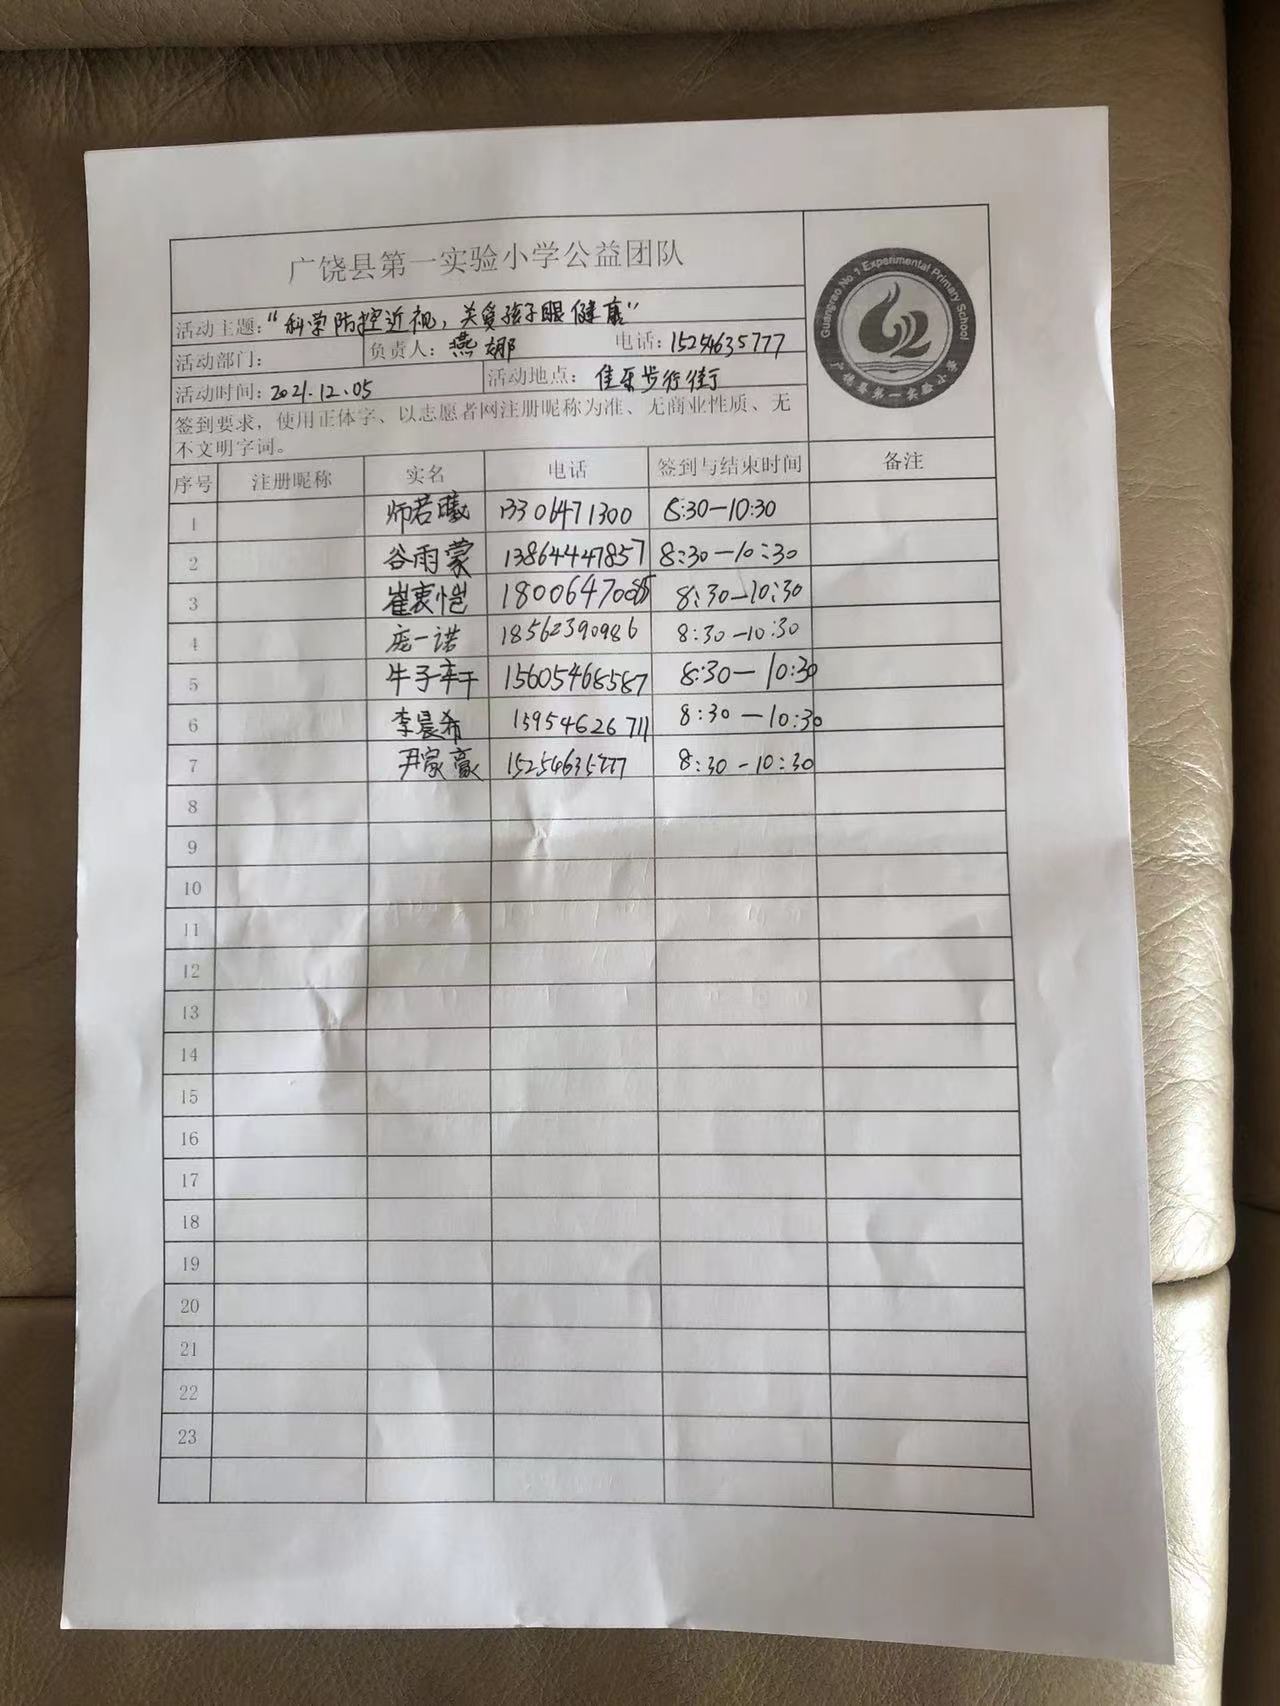 广饶县第一实验小学公益团队
Guangrao No 1 Experimental Primary School
广饶县第一实验小学
活动主题:"科学防控近视,关爱孩子眼健康"
活动部门: 负责人: 燕娜 电话: 15254635777
活动时间: 2021.12.05 活动地点: 佳乐步行街
签到要求,使用正体字、以志愿者网注册昵称为准、无商业性质、无
不文明字词。
序号 注册昵称 实名 电话 签到与结束时间 备注
1 师若曦 13306471300 8:30—10:30
2 谷雨蒙 13864447857 8:30—10:30
3 崔衷恺 8:30—10:30
4 庞一诺 18562390986 8:30—10:30
5 牛子轩 15605468587 8:30—10:30
6 李晨希 15954626711 8:30—10:30
7 尹家豪 15254635777 8:30-10:30
8
9
10
11
12
13
14
15
16
17
18
19
20
21
22
23